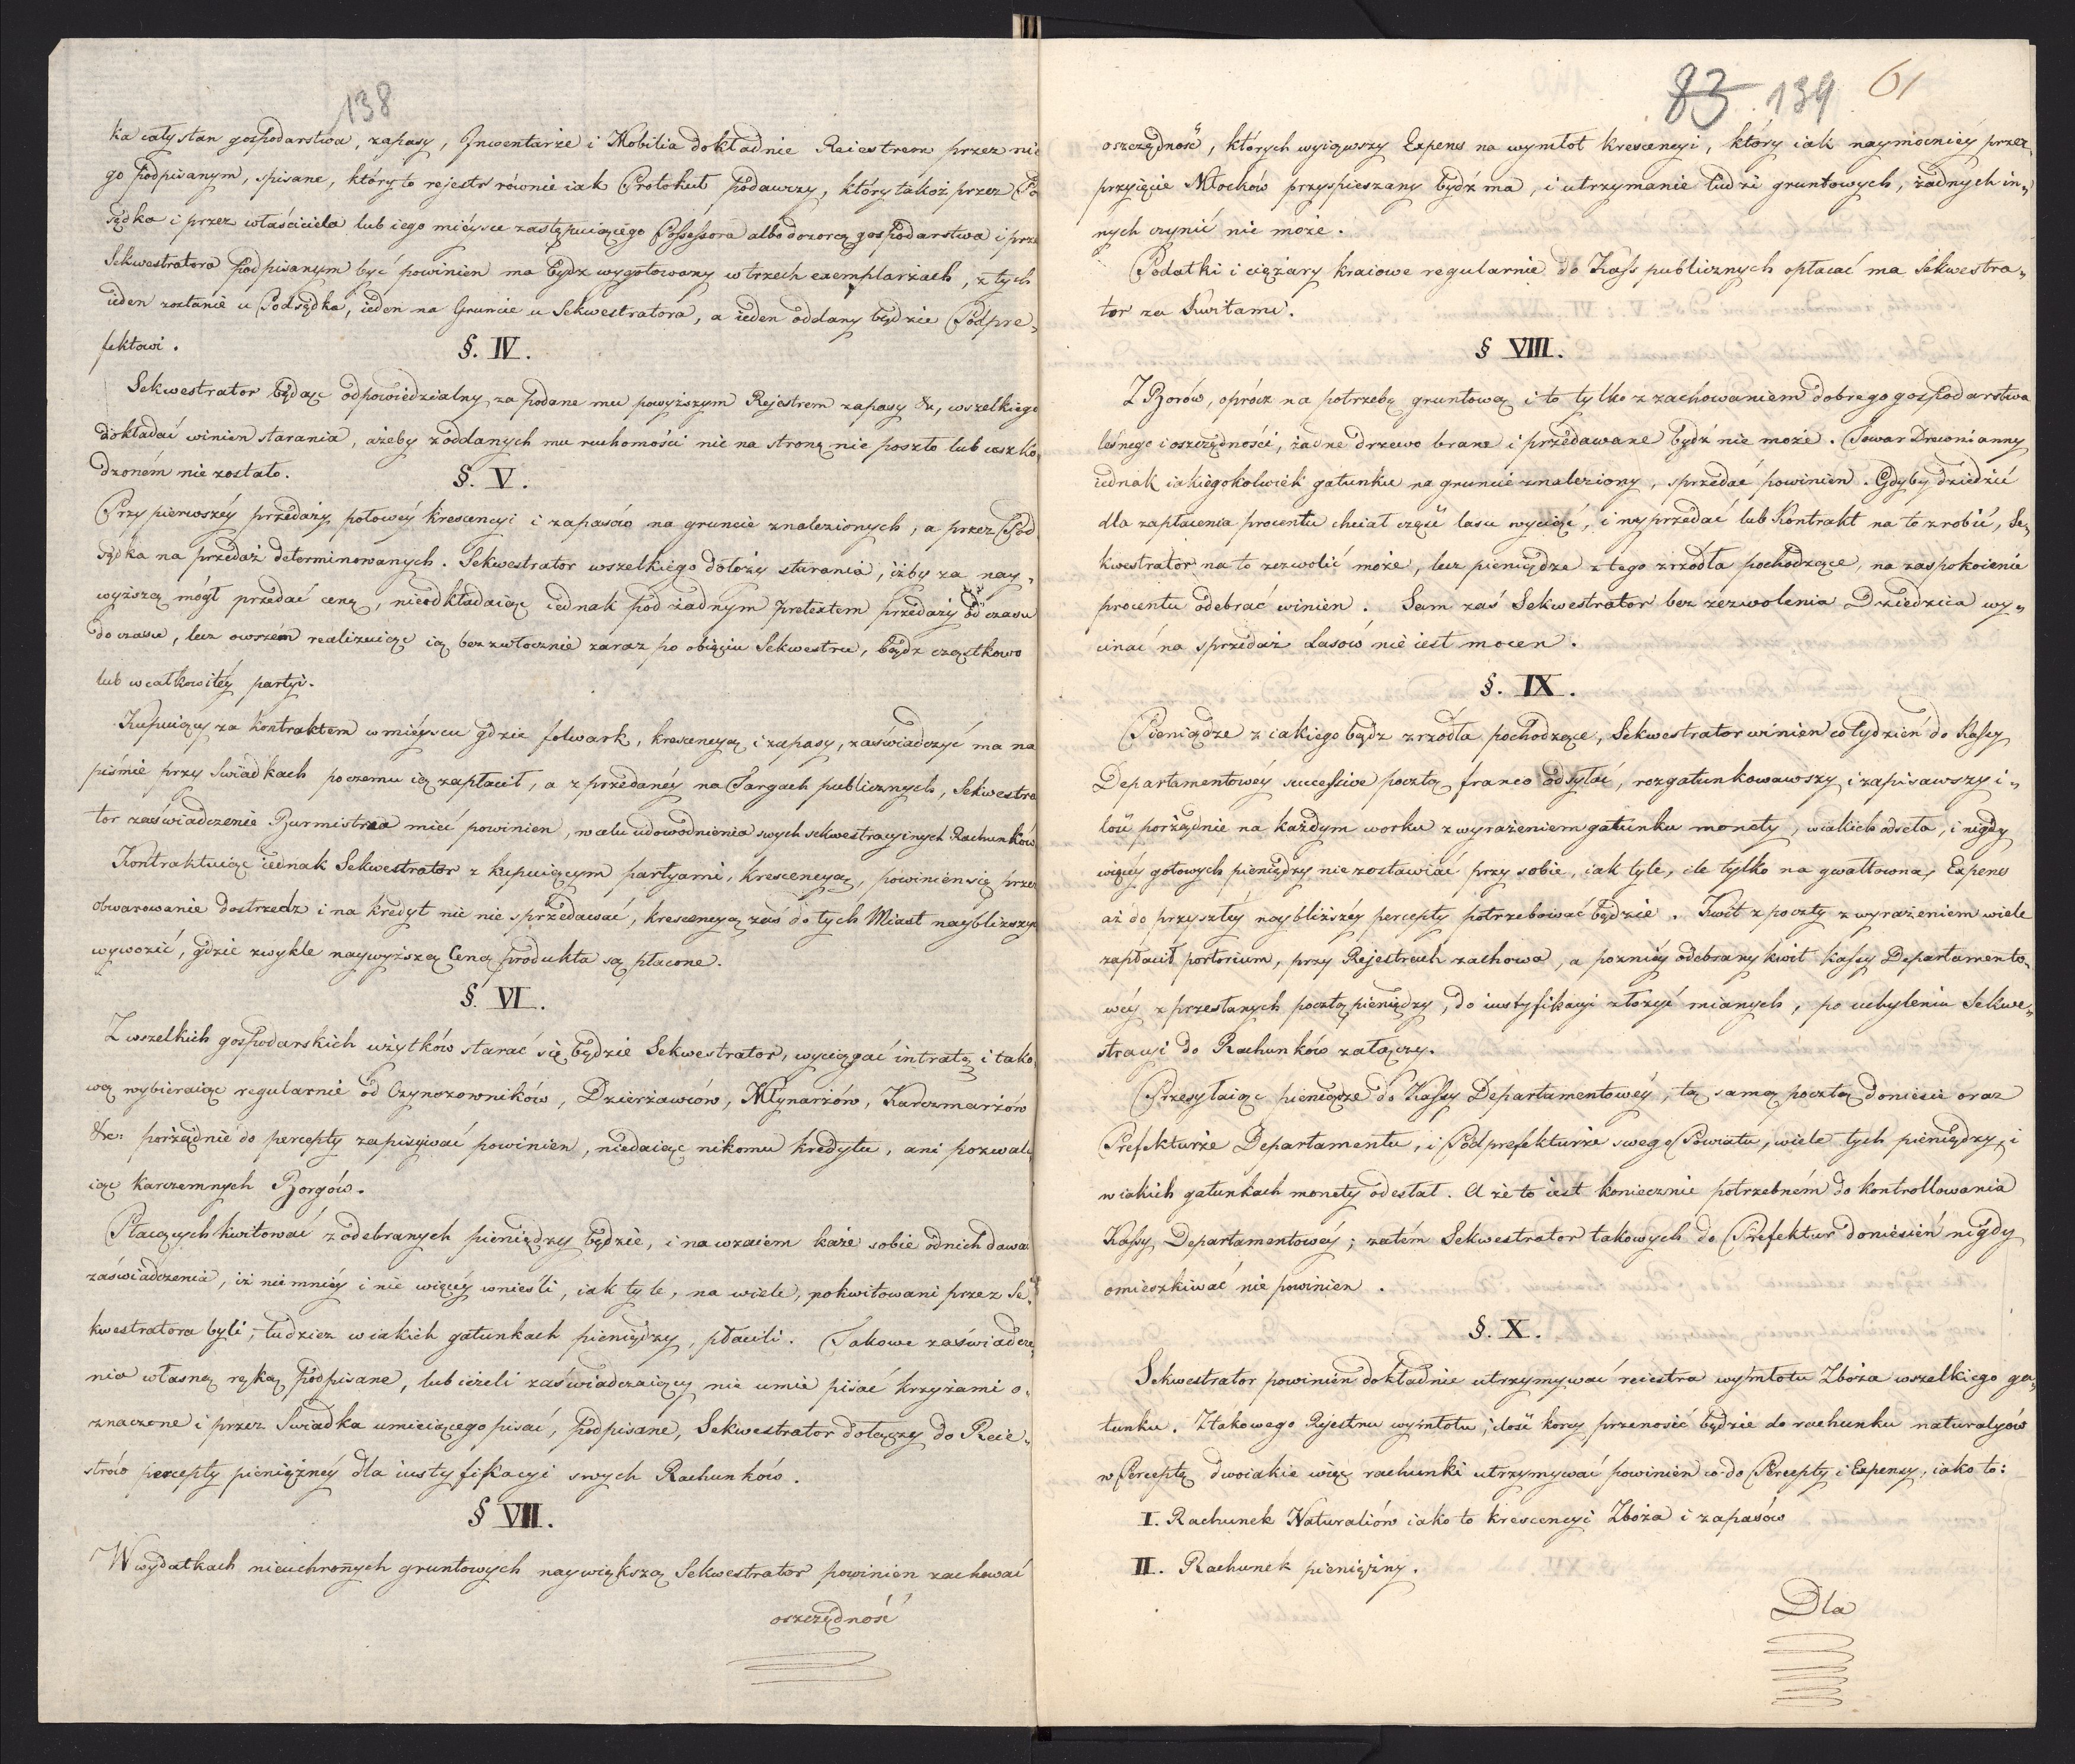 138
ka cały stan gospodarstwa, zapasy, Inwentarze i Mobilia dokładnie Reiestrem przez nie
go podpisanym, spisane, który to rejestr równie iak Protokuł podawczy, który takoż przez Po
sędka i przez właściciela lub iego mieysce zastępuiącego Possessora albo dozorcę gospodarstwa i prze
Sekwestratora podpisanym być powinien ma bydz wygotowany w trzech exemplarzach, z tych
ieden zostanie u Podsędka, ieden na Gruncie u Sekwestratora, a ieden oddany będzie Podpre„
fektowi.
§. IV.
Sekwestrator będąc odpowiedzialny za podane mu powyższym Rejestrem zapasy &c, wszelkiego
dokładać winien starania, ażeby z oddanych mu ruchomości nic na stronę nie poszło lub uszko
dzoném nie zostało.
§. V.
Przy pierwszéy przedaży połowéy krescencyi i zapasów na gruncie znalezionych, a przez Pod
sędka na przedaż determinowanych. Sekwestrator wszelkiego dołoży starania, iżby za nay„
wyższą mógł przedać cenę, nieodkładaiąc iednak pod żadnym pretextem przedaży od czasu
do czasu, lecz owszem realizuiąc ią bezzwłocznie zaraz po obięciu Sekwestru, bądz cząstkowo
lub w całkowitéy partyi.
Kupuiący za kontraktem w mieyscu gdzie folwark, krescencyą i zapasy, zaświadczyć ma na
piśmie przy Swiadkach po czemu ią zapłacił, a z przedanéy na Targach publicznych, Sekwestra
tor zaświadczenie Burmistrza mieć powinien, w celu udowodnienia swych sekwestracyinych Rachunków
Kontraktuiąc iednak Sekwestrator z kupuiącym partyami, krescencyą, powinien się przez
obwarowanie dostrzedz i na kredyt nic nie sprzedawać, krescencyą zaś do tych Miast naybliższyc
wywozić, gdzie zwykle naywyższą Ceną produkta są płacone.
§. VI.
Z wszelkich gospodarskich użytków starać się będzie Sekwestrator, wyciągać intratę i tako
wą wybieraiąc regularnie od Czynszowników, Dzierżawców, Młynarzów, Karczmarzów
&c: porządnie do percepty zapisywać powinien, niedaiąc nikomu kredytu, ani pozwala„
iąc karczemnych Borgów.
Płacących kwitować z odebranych pieniędzy będzie, i nawzaiem każe sobie od nich dawać
zaświadczenia, iż nie mniéy i nie więcéy wnieśli, iak tyle, na wiele, pokwitowani przez Se„
kwestratora byli, tudziez w iakich gatunkach pieniędzy, płacili. Takowe zaświadcze„
nia własną ręką podpisane, lub ieżeli zaświadczaiący nie umie pisać krzyżami o„
znaczone i przez Swiadka umieiącego pisać, podpisane, Sekwestrator dołączy do Reie„
strów percepty pieniężnéy dla iustyfikacyi swych Rachunków.
§ VII.
W wydatkach nieuchronnych gruntowych naywiększą Sekwestrator powinien zachować
oszczędność
83 139 61
oszczędność, których wyiąwszy Expens na wymłot krescencyi, który iak naymocniéy przez
przyięcie Młocków przyspieszany bydź ma, i utrzymanie ludzi gruntowych, żadnych in„
nych czynić nie może.
Podatki i ciężary kraiowe regularnie do Kass publicznych opłacać ma Sekwestra„
tor za Kwitami.
§ VIII.
Z Borów, oprócz na potrzebę gruntową i to tylko z zachowaniem dobrego gospodarstwa
leśnego i oszczędności, żadne drzewo brane i przedawane bydź nie może. Towar Drewnianny
iednak iakiegokolwiek gatunku na gruncie znaleziony, sprzedać powinien. Gdyby dziedzic
dla zapłacenia procentu chciał część lasu wyciąć, i wyprzedać lub Kontrakt na to zrobić, Se„
kwestrator na to zezwolić może, lecz pieniądze z tego zrzódła pochodzące, na zaspokoienie
procentu odebrać winien. Sam zaś Sekwestrator bez zezwolenia Dziedzica wy„
cinać na sprzedaż Lasów nie iest mocen.
§. IX.
Pieniądze z iakiego bądz zrzódła pochodzące, Sekwestrator winien co tydzień do Kassy
Departamentowéy successive pocztą franco odsyłać, rozgatunkowawszy i zapisawszy i„
lość porządnie na każdym worku z wyrażeniem gatunku monety, w iakich odseła, i nigdy
więcéy gotowych pieniędzy nie zostawiać przy sobie, iak tyle, ile tylko na gwałtowną Expens
aż do przyszłéy naybliższéy percepty potrzebować będzie. Kwit z poczty z wyrażeniem wiele
zapłacił portorium, przy Rejestrach zachowa, a pozniéy odebrany kwit kassy Departamento„
wéy z przesłanych pocztą pieniędzy, do iustyfikacyi złożyć mianych, po uchyleniu Sekwe„
stracyi do Rachunków załączy.
Przesyłaiąc pieniądze do Kassy Departamentowéy, tą samą pocztą doniesie oraz
Prefekturze Departamentu, i Podprefekturze swego Powiatu, wiele tych pieniędzy i
w iakich gatunkach monety odesłał. A że to iest koniecznie potrzebném do kontrollowania
Kassy Departamentowéy; zatém Sekwestrator takowych do Prefektur doniesień nigdy
omieszkiwać nie powinien.
§. X.
Sekwestrator powinien dokładnie utrzymywać reiestra wymłotu Zboża wszelkiego ga„
tunku. Z takowego Rejestru wymłotu, ilość korcy przenosić będzie do rachunku naturalyów
w Perceptę dwoiakie więc rachunki utrzymywać powinien co do Percepty i Expensy, iako to:
I. Rachunek Naturaliów iako to krescencyi Zboża i zapasów
II. Rachunek pieniężny.
Dla